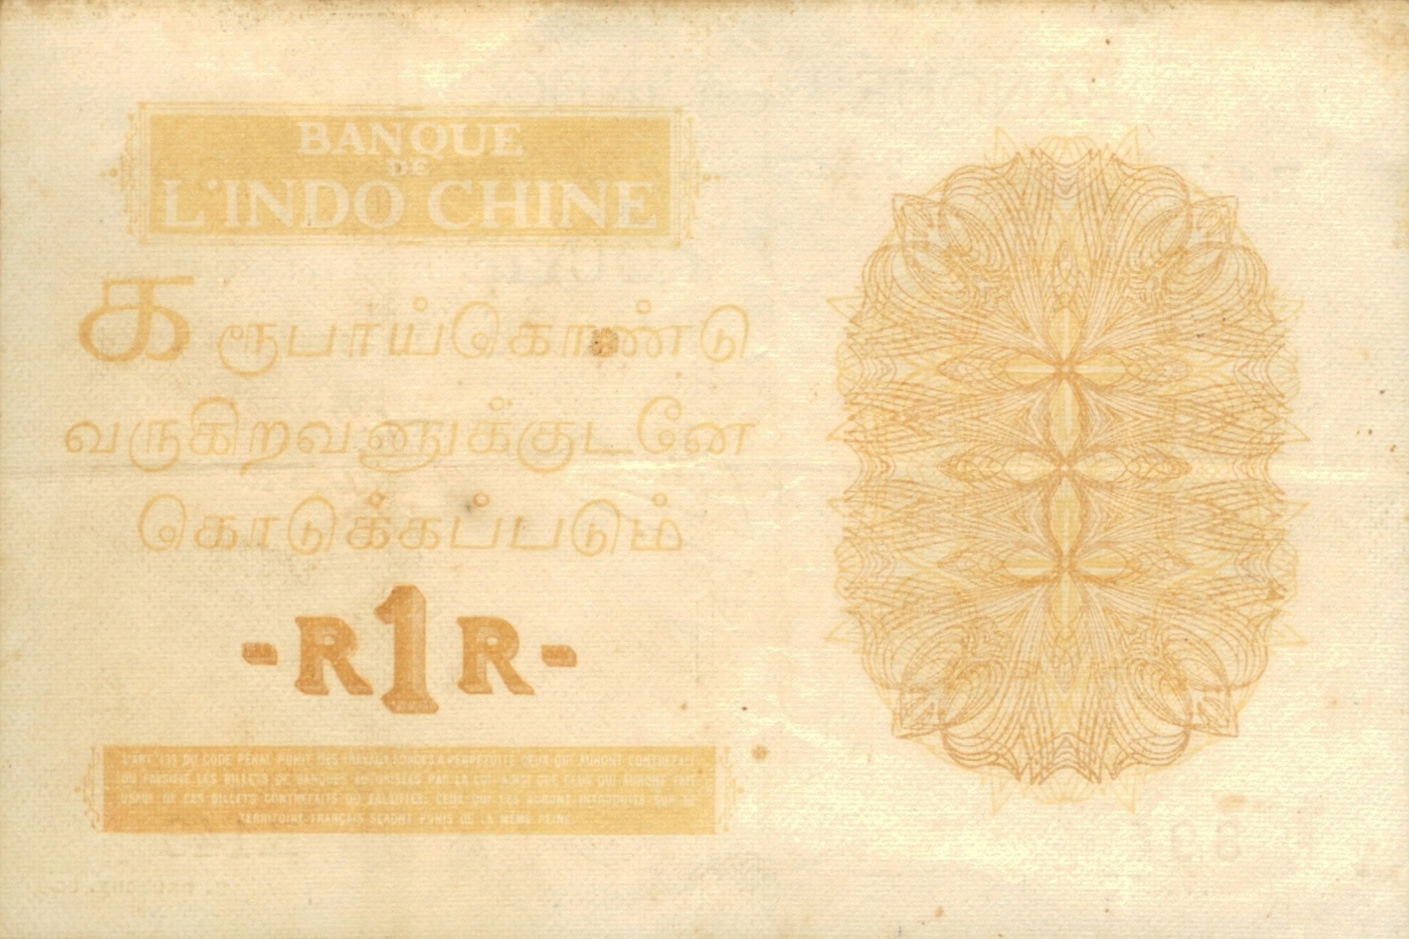 BANQUE
DE
L'INDO CHINE
க ரூபாய்கொண்டு
வருகிறவனுக்குடனே
கொடுக்கப்படும்
-R1R-
L'ART. 139 DU CODE PÉNAL PUNIT DES TRAVAUX FORCÉS À PERPÉTUITÉ CEUX QUI AURONT CONTREFAIT
OU FALSIFIÉ LES BILLETS DE BANQUES AUTORISÉES PAR LA LOI, AINSI QUE CEUX QUI AURONT FAIT
USAGE DE CES BILLETS CONTREFAITS OU FALSIFIÉS. CEUX QUI LES AURONT INTRODUITS SUR LE
TERRITOIRE FRANÇAIS SERONT PUNIS DE LA MÊME PEINE.